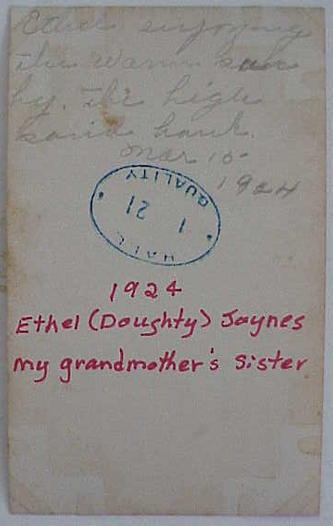 Ethel enjoying
the warm sun
by the high
sand bank.
Mar 15
1924
HALL
1 21
QUALITY
1924
Ethel (Doughty) Jaynes
my grandmother's sister